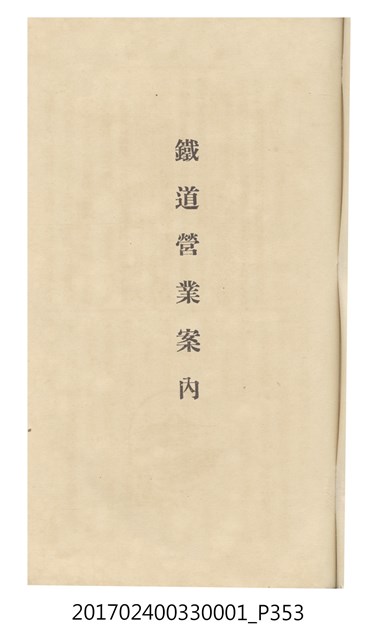 鐵道營業案內
201702400330001_P353